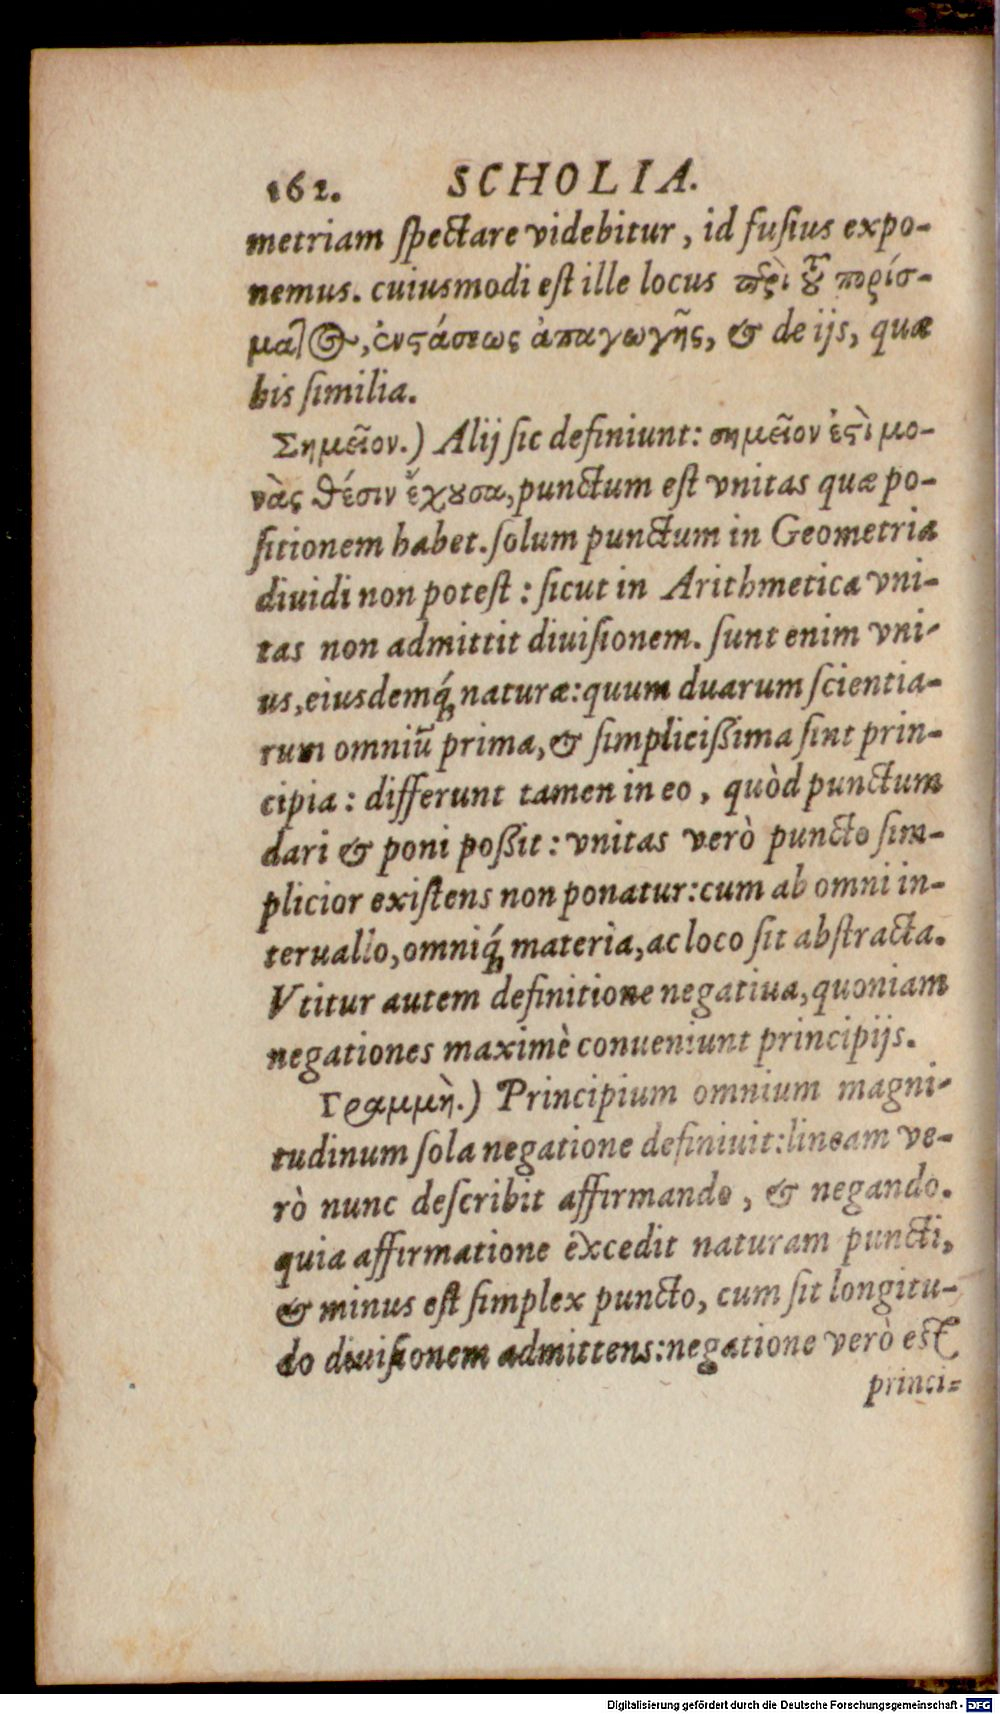 162. SCHOLIA.
metriam spectare videbitur, id fusius expo-
nemus. cuiusmodi est ille locus περὶ τοῦ πορίσ-
ματος, ἐνστάσεως ἀπαγωγῆς, & de ijs, quæ
his similia.
Σημεῖον.) Alij sic definiunt: σημεῖον ἐστὶ μο-
νὰς θέσιν ἔχουσα, punctum est vnitas quæ po-
sitionem habet. solum punctum in Geometria
diuidi non potest: sicut in Arithmetica vni-
tas non admittit diuisionem. sunt enim vni-
us, eiusdemq́; naturæ: quum duarum scientia-
rum omniũ prima, & simplicißima sint prin-
cipia: differunt tamen in eo, quòd punctum
dari & poni poßit: vnitas verò puncto sim-
plicior existens non ponatur: cum ab omni in-
teruallo, omniq́; materia, ac loco sit abstracta.
Vtitur autem definitione negatiua, quoniam
negationes maximè conueniunt principijs.
Γραμμὴ.) Principium omnium magni-
tudinum sola negatione definiuit: lineam ve-
rò nunc describit affirmando, & negando.
quia affirmatione excedit naturam puncti,
& minus est simplex puncto, cum sit longitu-
do diuisionem admittens: negatione verò est
princi-
Digitalisierung gefördert durch die Deutsche Forschungsgemeinschaft - DFG